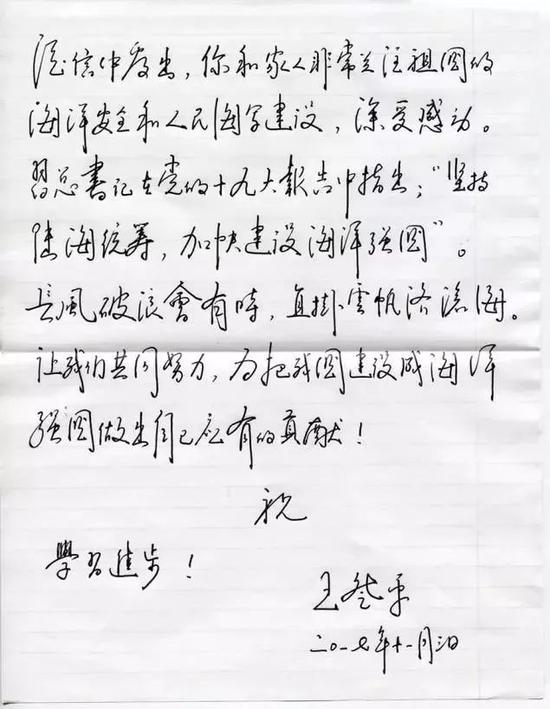 从信中看出，你和家人非常关注祖國的
海洋安全和人民海军建设，深受感动。
習总書记在党的十九大報告中指出：“坚持
陆海统筹，加快建设海洋强國”。
長風破浪會有時，直掛雲帆济滄海。
让我们共同努力，为把我國建设成海洋
强國做出自己应有的貢献！
祝
學習進步！
王登平
二〇一七年十一月三日